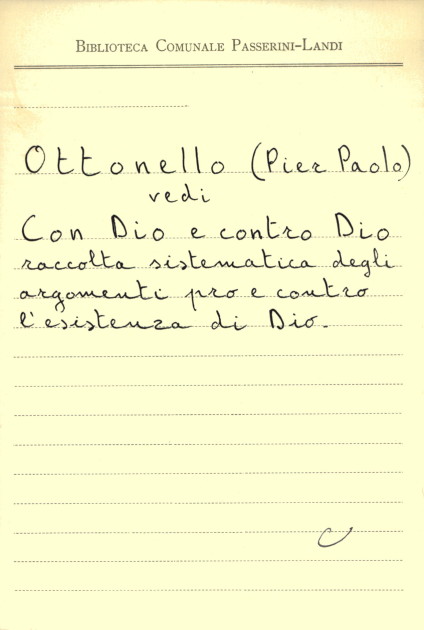 BIBLIOTECA COMUNALE PASSERINI-LANDI
Ottonello (Pier Paolo)
vedi
Con Dio e contro Dio
raccolta sistematica degli
argomenti pro e contro
l'esistenza di Dio.